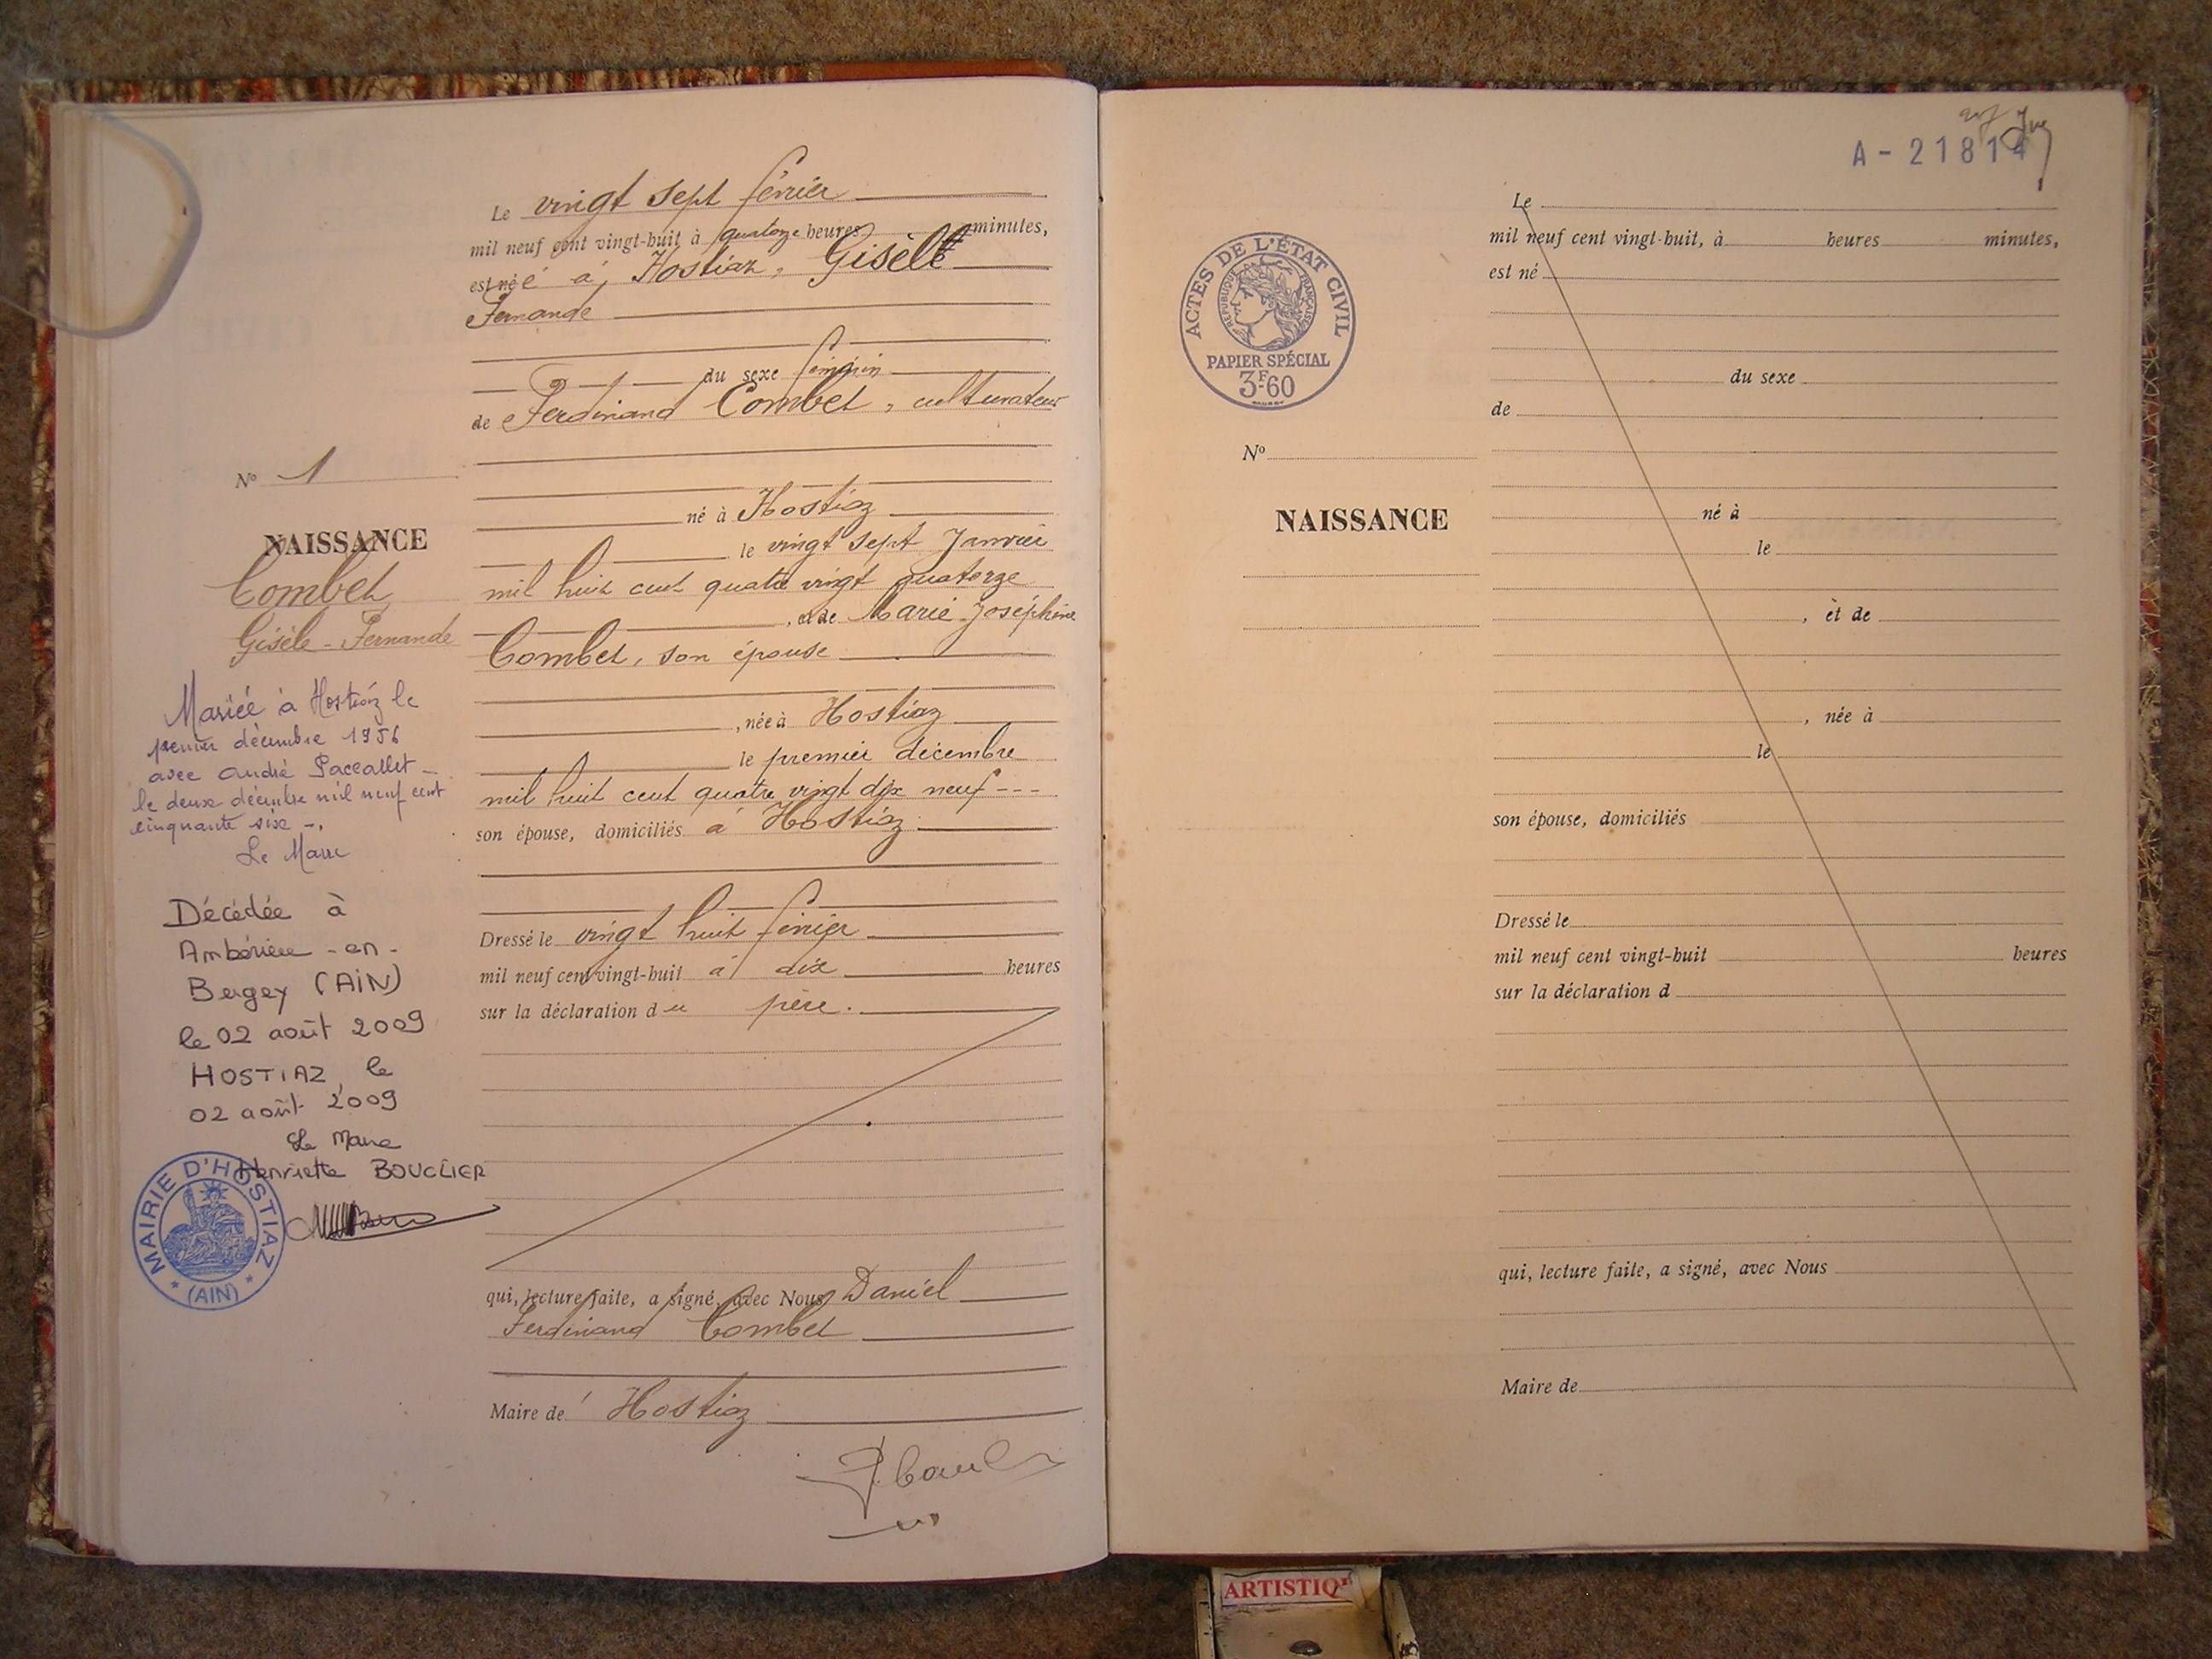 Le vingt sept février
mil neuf cent vingt-huit à quatorze heures minutes,
est née à Hostiaz, Gisèle
Fernande
du sexe féminin
de Ferdinand Combet, cultivateur
né à Hostiaz
le vingt sept Janvier
mil huit cent quatre vingt quatorze
, et de Marie Joséphine
Combet, son épouse
, née à Hostiaz
le premier décembre
mil huit cent quatre vingt dix neuf ---
son épouse, domiciliés à Hostiaz
Dressé le vingt huit février
mil neuf cent vingt-huit à dix heures
sur la déclaration du père.
qui, lecture faite, a signé, avec Nous Daniel
Ferdinand Combet
Maire de Hostiaz
No 1
NAISSANCE
Combet
Gisèle - Fernande
Mariée à Hostiaz le
premier décembre 1956
avec André Paccallet -
le deux décembre mil neuf cent
cinquante six -.
Le Maire
Décédée à
Ambérieu - en -
Bugey (AIN)
le 02 août 2009
HOSTIAZ, le
02 août 2009
Le Maire
Henriette BOUCLIER
MAIRIE D'HOSTIAZ
* (AIN) *
A - 21814
ACTES DE L'ÉTAT CIVIL
RÉPUBLIQUE FRANÇAISE
PAPIER SPÉCIAL
3F60
No
NAISSANCE
Le
mil neuf cent vingt-huit, à heures minutes,
est né
du sexe
de
né à
le
, et de
, née à
le
son épouse, domiciliés
Dressé le
mil neuf cent vingt-huit heures
sur la déclaration d
qui, lecture faite, a signé, avec Nous
Maire de
ARTISTIQ